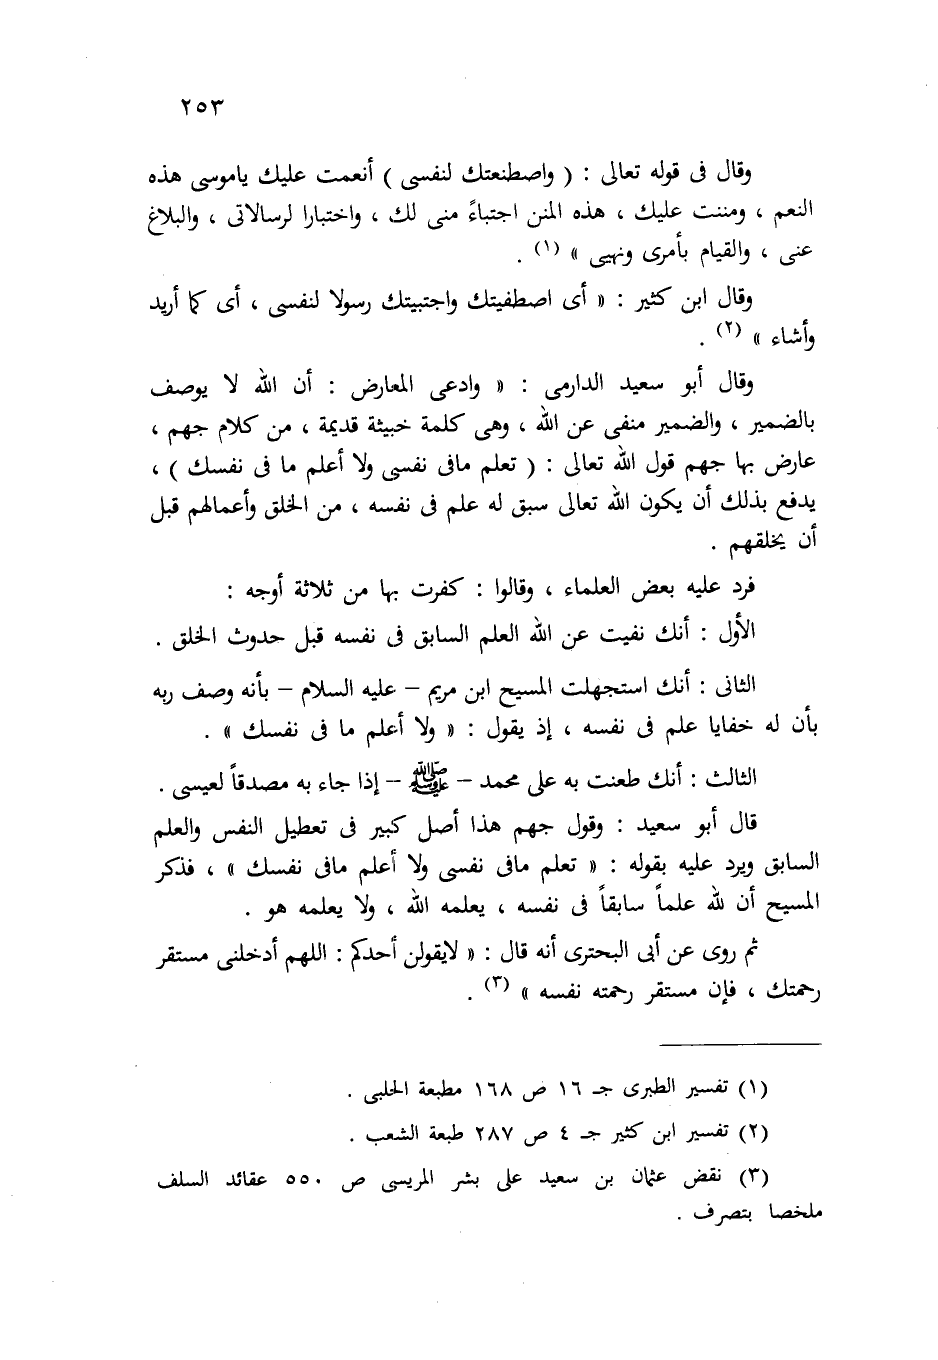 ٢٥٣
وقال فى قوله تعالى : ( واصطنعتك لنفسى ) أنعمت عليك ياموسى هذه
النعم ، ومننت عليك ، هذه المنن اجتباءً منى لك ، واختبارا لرسالاتى ، والبلاغ
عنى ، والقيام بأمرى ونهيى » (١) .
وقال ابن كثير : « أى اصطفيتك واجتبيتك رسولا لنفسى ، أى كما أريد
وأشاء » (٢) .
وقال أبو سعيد الدارمى : « وادعى المعارض : أن الله لا يوصف
بالضمير ، والضمير منفى عن الله ، وهى كلمة خبيثة قديمة ، من كلام جهم ،
عارض بها جهم قول الله تعالى : ( تعلم مافى نفسى ولا أعلم ما فى نفسك ) ،
يدفع بذلك أن يكون الله تعالى سبق له علم فى نفسه ، من الخلق وأعمالهم قبل
أن يخلقهم .
فرد عليه بعض العلماء ، وقالوا : كفرت بها من ثلاثة أوجه :
الأول : أنك نفيت عن الله العلم السابق فى نفسه قبل حدوث الخلق .
الثانى : أنك استجهلت المسيح ابن مريم – عليه السلام – بأنه وصف ربه
بأن له خفايا علم فى نفسه ، إذ يقول : « ولا أعلم ما فى نفسك » .
الثالث : أنك طعنت به على محمد – ﷺ – إذا جاء به مصدقاً لعيسى .
قال أبو سعيد : وقول جهم هذا أصل كبير فى تعطيل النفس والعلم
السابق ويرد عليه بقوله : « تعلم مافى نفسى ولا أعلم مافى نفسك » ، فذكر
المسيح أن لله علماً سابقاً فى نفسه ، يعلمه الله ، ولا يعلمه هو .
ثم روى عن أبى البحترى أنه قال : « لايقولن أحدكم : اللهم أدخلنى مستقر
رحمتك ، فإن مستقر رحمته نفسه » (٣) .
(١) تفسير الطبرى جـ ١٦ ص ١٦٨ مطبعة الحلبى .
(٢) تفسير ابن كثير جـ ٤ ص ٢٨٧ طبعة الشعب .
(٣) نقض عثمان بن سعيد على بشر المريسى ص ٥٥٠ عقائد السلف
ملخصا بتصرف .